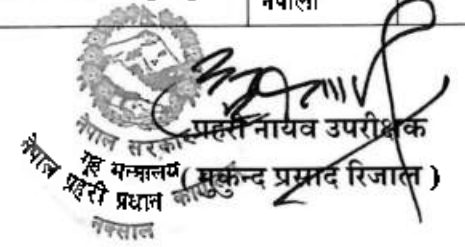 नेपाली
प्रहरी नायव उपरीक्षक
( मुकुन्द प्रसाद रिजाल )
नेपाल सरकार
गृह मन्त्रालय
नेपाल प्रहरी प्रधान कार्यालय
नक्साल